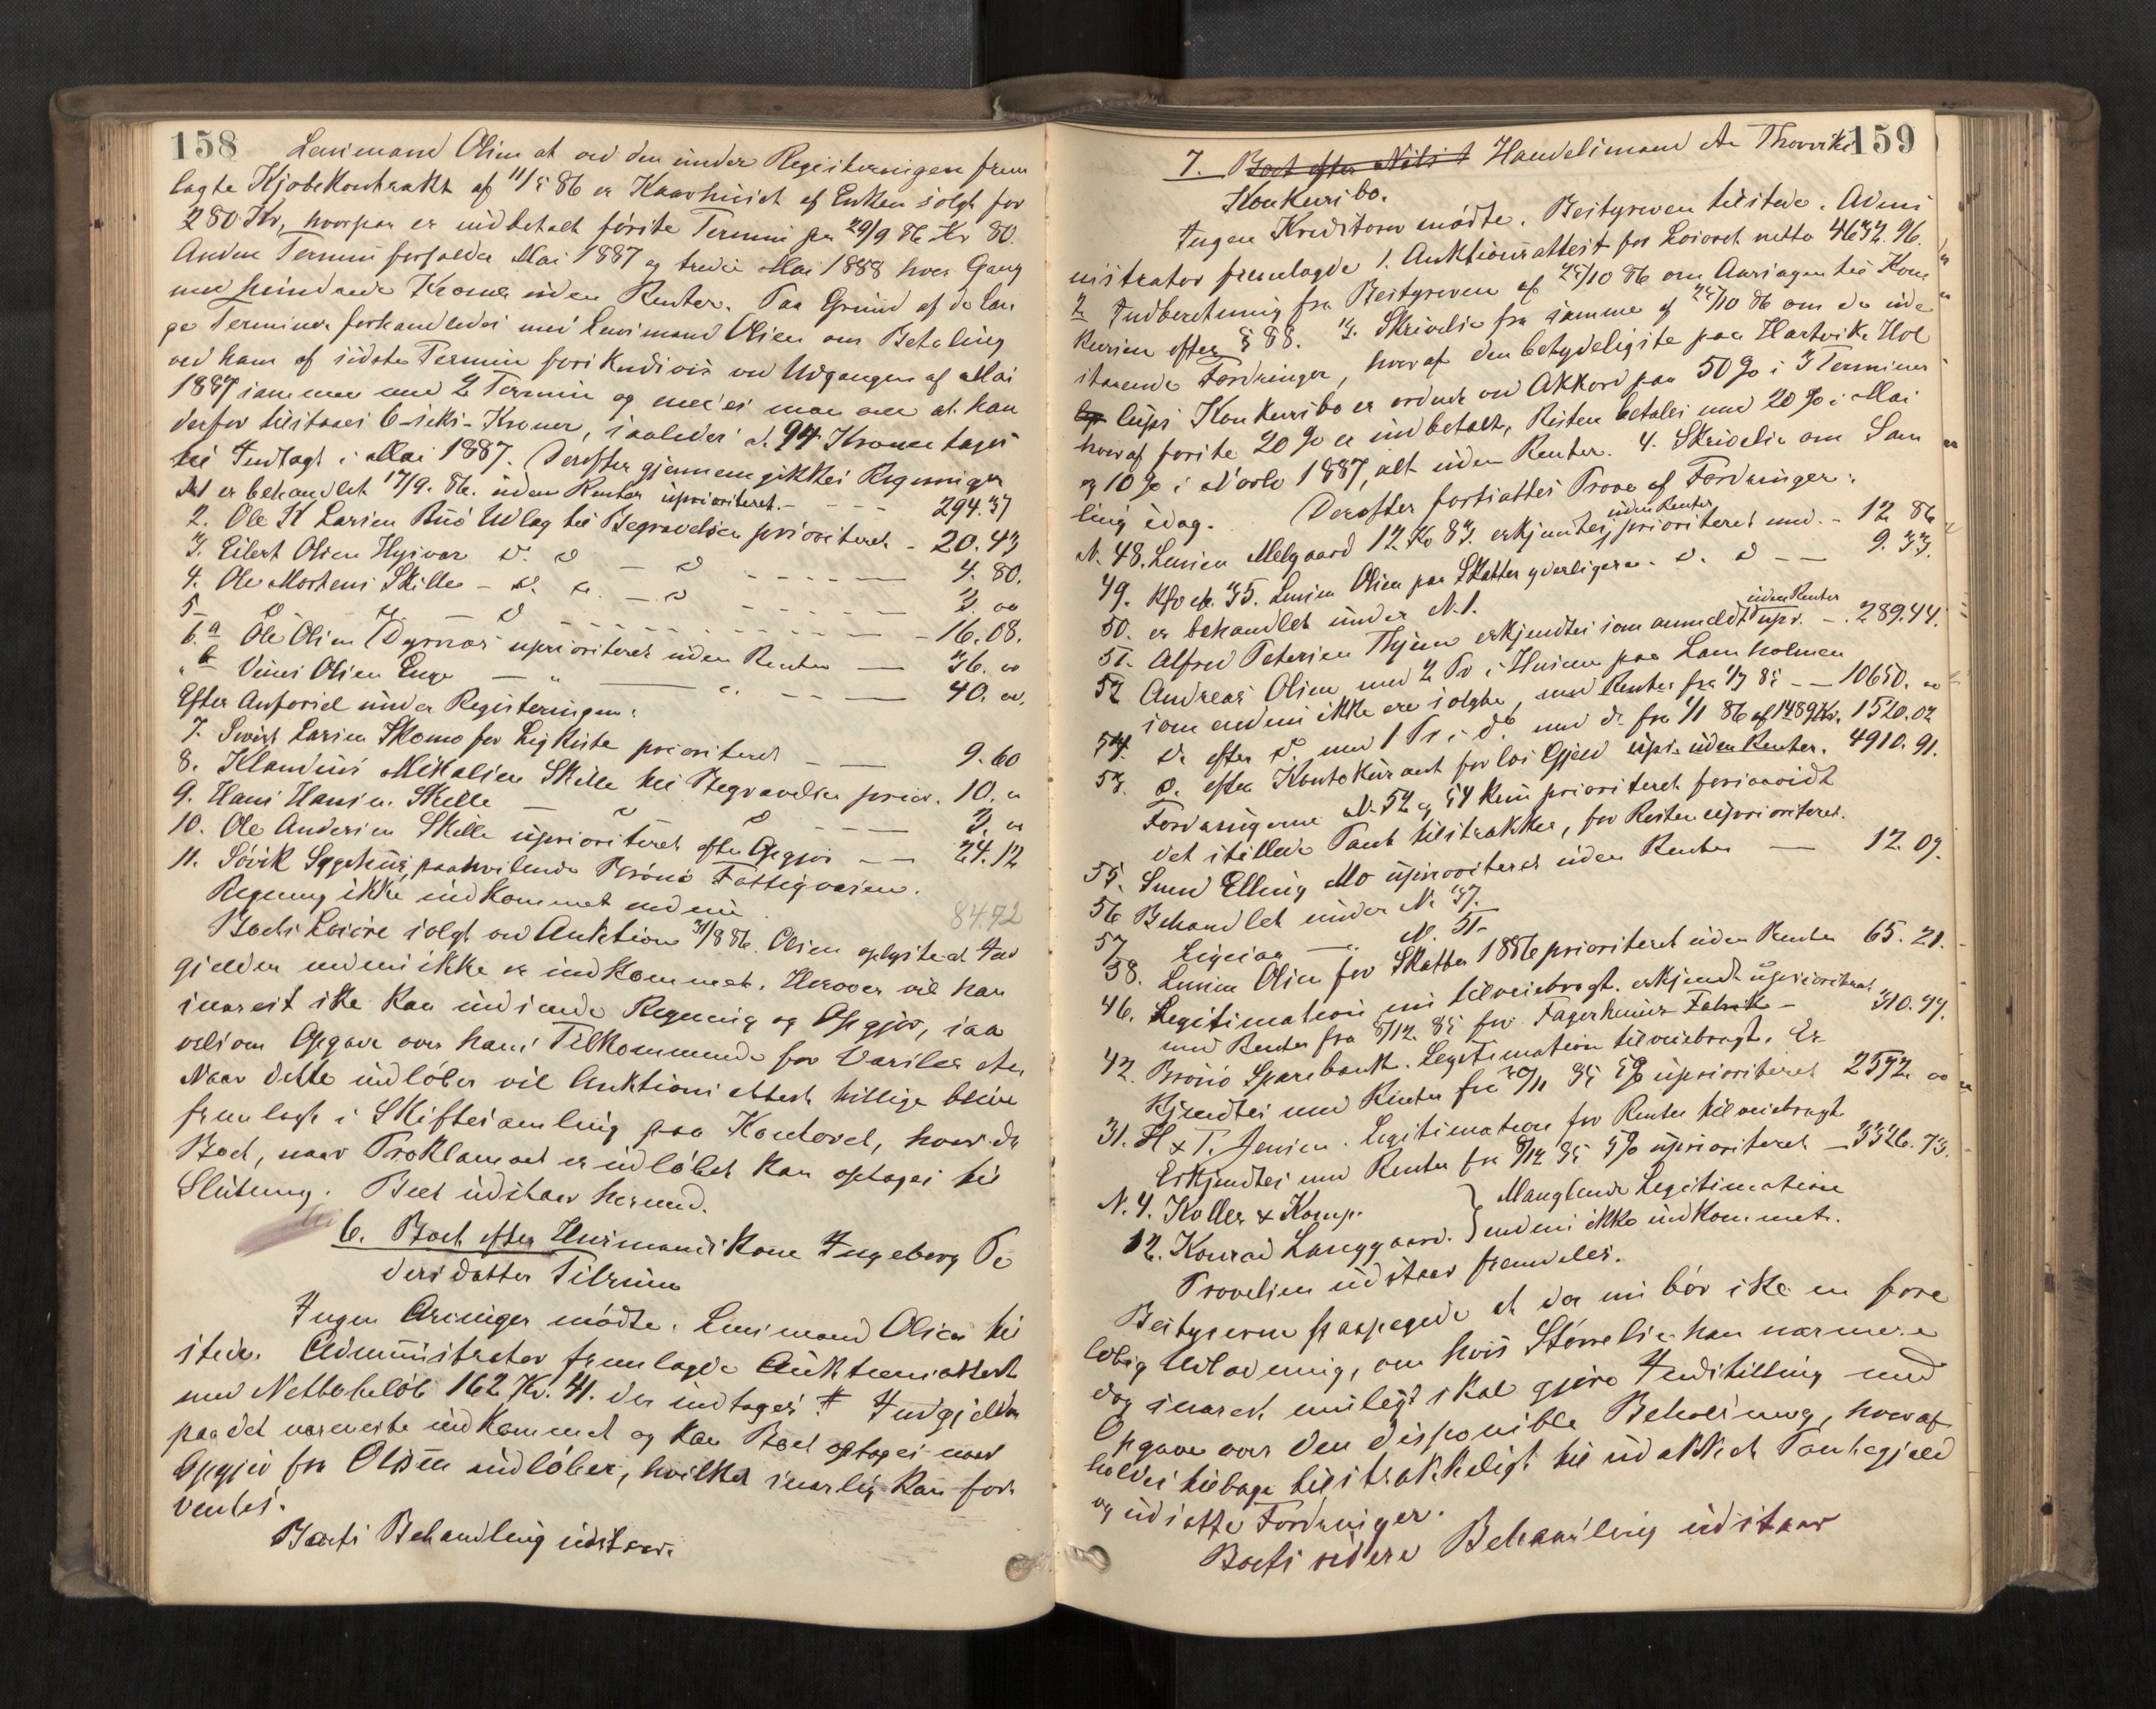 158
Lensmand Olsen at ved den under Registreringen frem
lagte Kjøbekontrakt af 11/5 86 er Kaarhuset af Enken solgt for
280 Kr, hvorpaa er indbetalt første Termin pr 29/9 86 Kr 80.
Anden Termin forfalder Mai 1887 og tredie Mai 1888 hver Gang
med hundrede Kroner uden Renter. Paa Grund af de lan
ge Terminer forhandledes med Lensmand Olsen om Betaling
ved ham af sidste Termin forskudsvis ved Udgangen af Mai
1887 sammen med 2 Termin og man at han
derfor tilstaaes 6 - seks - Kroner, saaledes at 94 Kroner tages
til Indtægt i Mai 1887. Derefter gjennemgikkes Regninger
N. 1 er behandlet 17/9. 86. uden Renter uprioriteret. - - - 294.37
2. Ole K Larsen Udlæg til Begravelsen prioriteret - 20.43
3. Eilert Olsen d. d - d - - - - 4. 80.
4. Ole Mortens Skille - d. d. - d - - - - 3. oo
5 - d d d - - - - - 16. 08.
6.a Ole Olsen Dyrnæs uprioriteret uden Renter - 36. oo
" b Olsen Enge - " - " - - 40. oo.
Efter Anførsel under Registreringen:
7. Sivert Larsen Skomo for Ligkiste prioriteret - - 9. 60
8. Klaudius Mikalsen Skille til Begravelsen prior. 10. "
9. Hans Hansen Skille - " d - - - 3. "
10. Ole Andersen Skille uprioriteret efter Opgjør - - 24.12
11. Søvik Sygehus, paahvilende Brønø Fattigvæsen.
Regning ikke indkommet endnu
8472
Boets Løsøre solgt ved Auktion 31/8 86. Olsen oplyste at Ind
gjælden endnu ikke er indkommet. Herover vil han
snarest ske kan indsende Regning og Opgjør, saa
velsom Opgave over hans Tilkommende for Varsler etc.
Naar dette indløber vil Auktionsattest tillige blive
fremlagt i Skiftesamling paa Kontoret, hvor da
Boet, naar Proklamaet er udløbet kan optages til
Slutning. Boet udstaar hermed.
6. Boet efter Husmandskone Ingeborg Pe
dersdatter Tilrum
Ingen Arvinger mødte. Lensmand Olsen til
stede. Administrator fremlagde Auktionsattest
med Nettobeløb 162 Kr. 41. der indtages # Indgjælden
paa det nærmeste indkommet og kan Boet optages naar
Opgjør fra Olsen indløber, hvilket snarlig kan for
ventes.
Boets Behandling udstaar.
159
7. Boet efter Nils J Handelsmand A Thorviks
Konkursbo.
Ingen Kreditorer mødte. Bestyreren tilstede. Admi
nistrator fremlagde 1. Auktionsattest for Løsøret netto 4632. 96.
2 Indberetning fra Bestyreren af 25/10 86 om Aarsagen til Kon
kursen efter § 88. 3. Skrivelse fra samme af 25/10 86 om de ude
staaende Fordringer, hvoraf den betydeligste paa Hartvik Hol
lups Konkursbo er ordnet ved Akkord paa 50 % i 3 Terminer
hvoraf første 20 % er indbetalt, Resten betales med 20 % i Mai
og 10 % i Novbr 1887, alt uden Renter. 4. Skrivelse om Sam
ling idag. Derefter fortsattes Prøve af Fordringer:
N. 48. Lensm Melgaard 12 Kr 83. erkjendtes uden Renter prioriteret med. - 12 86
49. Kfr 35. Lensm Olsen paa Skatter yderligere. d. d - - 9. 33.
50. er behandlet under N. 1.
51. Alfred Petersen erkjendtes som anmeldt upr. uden Renter - . 289.44.
52 Andreas Olsen med 2 Pr i Husene paa Lamholmen
som endnu ikke ere solgte, med Renter fra 1/7 85 - - 10650. oo
54. d. efter d. med 1 Pr i do med d. fra 1/1 86 af 1489 Kr. 1520.02
53. d. efter Kontokurant for løs Gjæld upr. uden Renter. 4910. 91.
Fordringerne N. 52 og 54 kun prioriteret forsaavidt
det stillede Pant tilstrækker, for Resten uprioriteret.
55. Elling Mo uprioriteret uden Renter - 12. 09.
56 Behandlet under N. 37.
57 Ligesaa - N. 51
38. Lensm Olsen for Skatter 1886 prioriteret uden Renter 65. 21.
46. Legitimation nu tilveiebragt. erkjendt uprioriteret
med Renter fra 8/12. 85 for Fagerheims Fabrik - 310. 97.
42. Brønø Sparebank. Legitimation tilveiebragt. Er
kjendtes med Renter fra 30/11 85 5% uprioriteret 2592. oo
31. H & T. Jensen. Legitimation for Renter tilveiebragt.
Erkjendtes med Renter fra 9/12 85 5% uprioriteret - 3326. 73.
N. 4. Koller & Komp. } Manglende Legitimation
12. Konrad Langgaard. } endnu ikke indkommet.
Prøvelsen udstaar fremdeles.
Bestyreren paapegede at der nu bør ske en fore
løbig Udlodning, om hvis Størrelse han nærmere
dog snarest muligt skal gjøre Indstilling med
Opgave over den disponible Beholdning, hvoraf
holdes tilbage tilstrækkeligt til udækket Pantegjæld
og udsatte Fordringer.
Boets videre Behandling udstaar